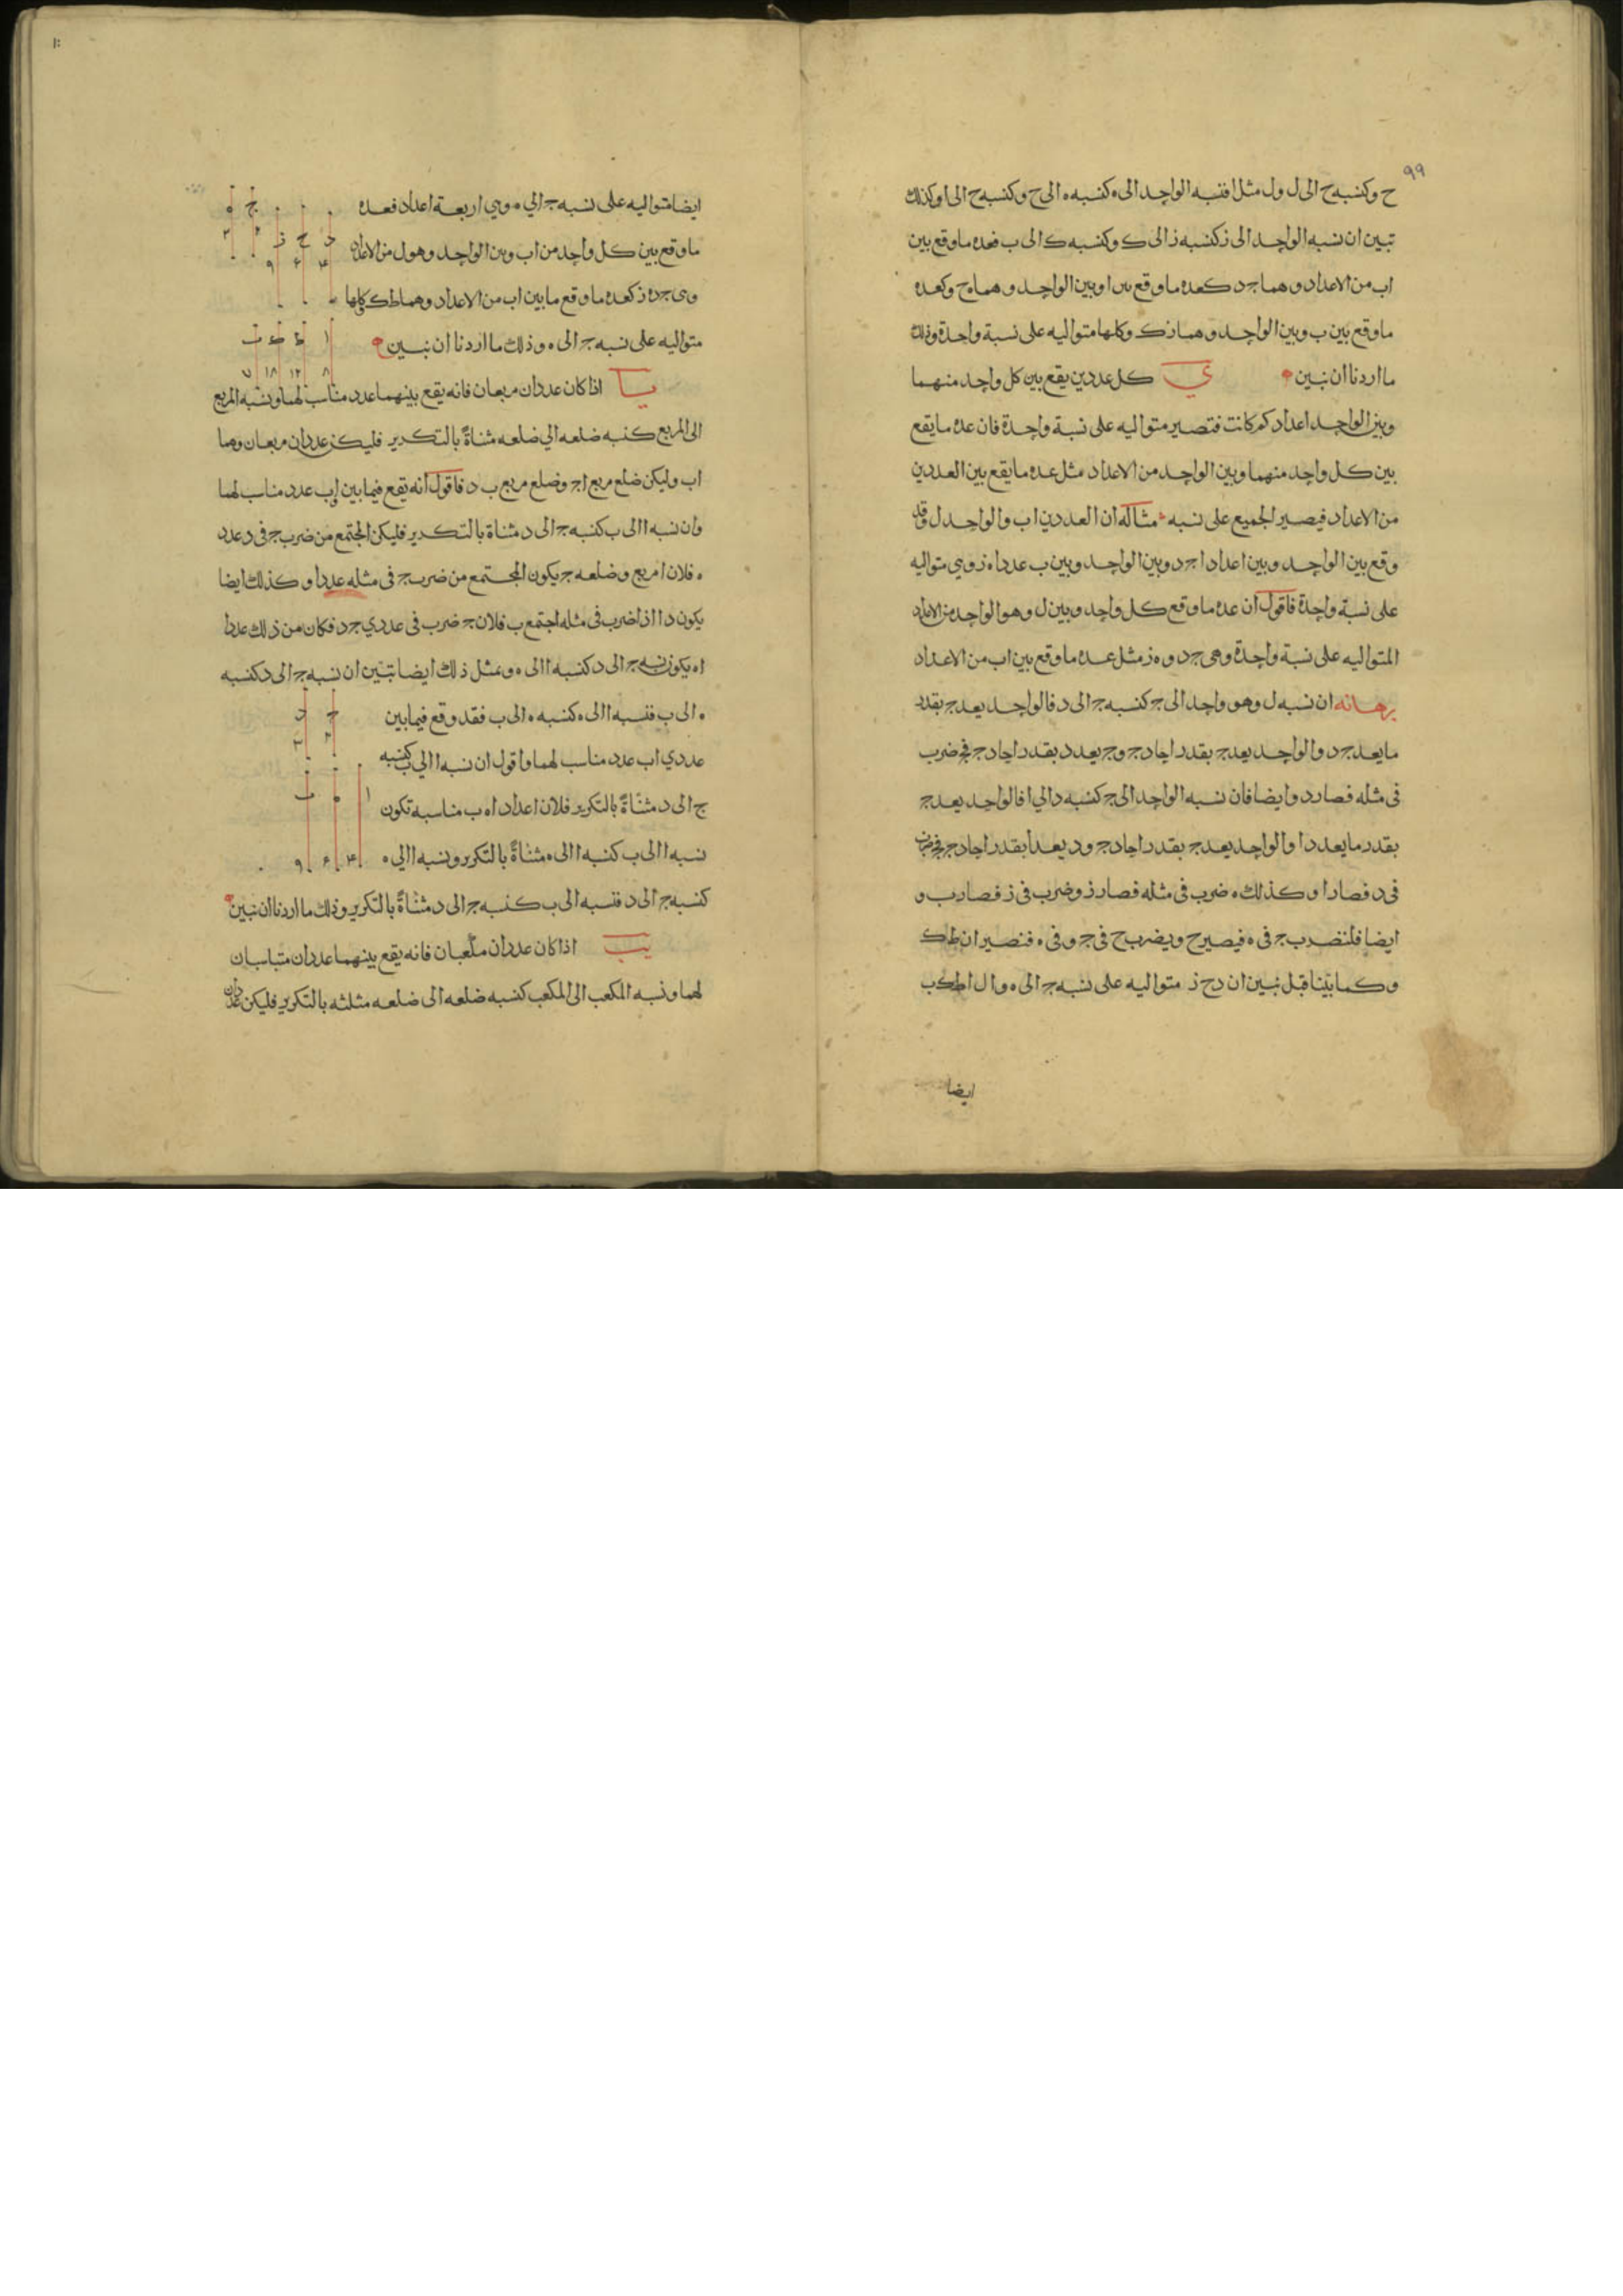 ٩٩
ح وكنسبه ح الى ل ول مثل ا فنسبه الواحد الى ه كنسبه ه الى ح وكنسبه ح الى ا وكذلك
تبين ان نسبه الواحد الى ز كنسبه ز الى ك وكنسبه ك الى ب فعده ما وقع بين
اب من الاعداد وهما ج د كعده ما وقع بين ا وبين الواحد وهما ه ح وكعده
ما وقع بين ب وبين الواحد وهما ز ك وكلها متواليه على نسبة واحدة وذلك
ما اردنا ان نبين ي كل عددين يقع بين كل واحد منهما
وبين الواحد اعداد كم كانت فتصير متواليه على نسبة واحدة فان عده ما يقع
بين كل واحد منهما وبين الواحد من الاعداد مثل عده ما يقع بين العددين
من الاعداد فيصير الجميع على نسبه مثاله ان العددين اب والواحد ل وقد
وقع بين الواحد وبين اعداد ا ج د وبين الواحد وبين ب عددا ه ز وهي متواليه
على نسبة واحدة فاقول ان عده ما وقع كل واحد وبين ل وهو الواحد من الاعداد
المتواليه على نسبة واحدة وهى ج د و ه ز مثل عده ما وقع بين اب من الاعداد
برهانه ان نسبه ل وهو واحد الى ج كنسبه ج الى د فالواحد يعد ج بقدر
ما يعد ج د والواحد يعد ج بقدر احاد ج و ج يعد د بقدر احاد ج فج ضرب
فى مثله فصار د وايضا فان نسبه الواحد الى ج كنسبه د الي ا فالواحد يعد ج
بقدر ما يعد د ا والواحد يعد ج بقدر احاد ج و د يعد ا بقدر احاد ج فج ضرب
فى د فصار ا وكذلك ه ضرب فى مثله فصار ز وضرب فى ز فصار ب و
ايضا فلنضرب ج فى ه فيصير ح ويضرب ح فى ج وفى ه فتصيران ط ك
وكما بيّنا قبل نبين ان د ح ز متواليه على نسبه ج الى ه و ال ا ط ك ب
ايضا
ايضا متواليه على نسبه ج الي ه وهي اربعة اعداد فعده
ما وقع بين كل واحد من اب وبين الواحد وهو ل من الاعداد
وهى ج د ه ز كعده ما وقع ما بين اب من الاعداد وهما ط ك وكلها
متواليه على نسبه ج الى ه وذلك ما اردنا ان نبين
ج ه
٢ ٣
د ح ز
٤ ٦ ٩
ا ط ك ب
٨ ١٢ ١٨ ٢٧
يا اذا كان عددان مربعان فانه يقع بينهما عدد مناسب لهما ونسبه المربع
الى المربع كنسبه ضلعه الي ضلعه مثناةً بالتكرير فليكن عددان مربعان وهما
اب وليكن ضلع مربع ا ج وضلع مربع ب د فاقول انه يقع فيما بين اب عدد مناسب لهما
وان نسبه ا الى ب كنسبه ج الى د مثناة بالتكرير فليكن المجتمع من ضرب ج فى د عدد
ه فلان ا مربع وضلعه ج يكون المجتمع من ضرب ج فى مثله عدد ا وكذلك ايضا
يكون د اذا ضرب فى مثله اجتمع ب فلان ج ضرب فى عددي ج د فكان من ذلك عددا
ا ه يكون نسبه ج الى د كنسبه ا الى ه وبمثل ذلك ايضا تبين ان نسبه ج الى د كنسبه
ه الى ب فنسبه ا الى ه كنسبه ه الى ب فقد وقع فيما بين
عددي اب عدد مناسب لهما واقول ان نسبه ا الي ب كنسبه
ج الى د مثناةً بالتكرير فلان اعداد ا ه ب متناسبه تكون
نسبه ا الى ب كنسبه ا الى ه مثناةً بالتكرير ونسبه ا الي ه
ج د
٢ ٣
ا ه ب
٤ ٦ ٩
كنسبه ج الى د فنسبه ا الى ب كنسبه ج الى د مثناةً بالتكرير وذلك ما اردنا ان نبين
يب اذا كان عددان مكعبان فانه يقع بينهما عددان متناسبان
لهما ونسبه المكعب الى المكعب كنسبه ضلعه الى ضلعه مثلثه بالتكرير فليكن عددان